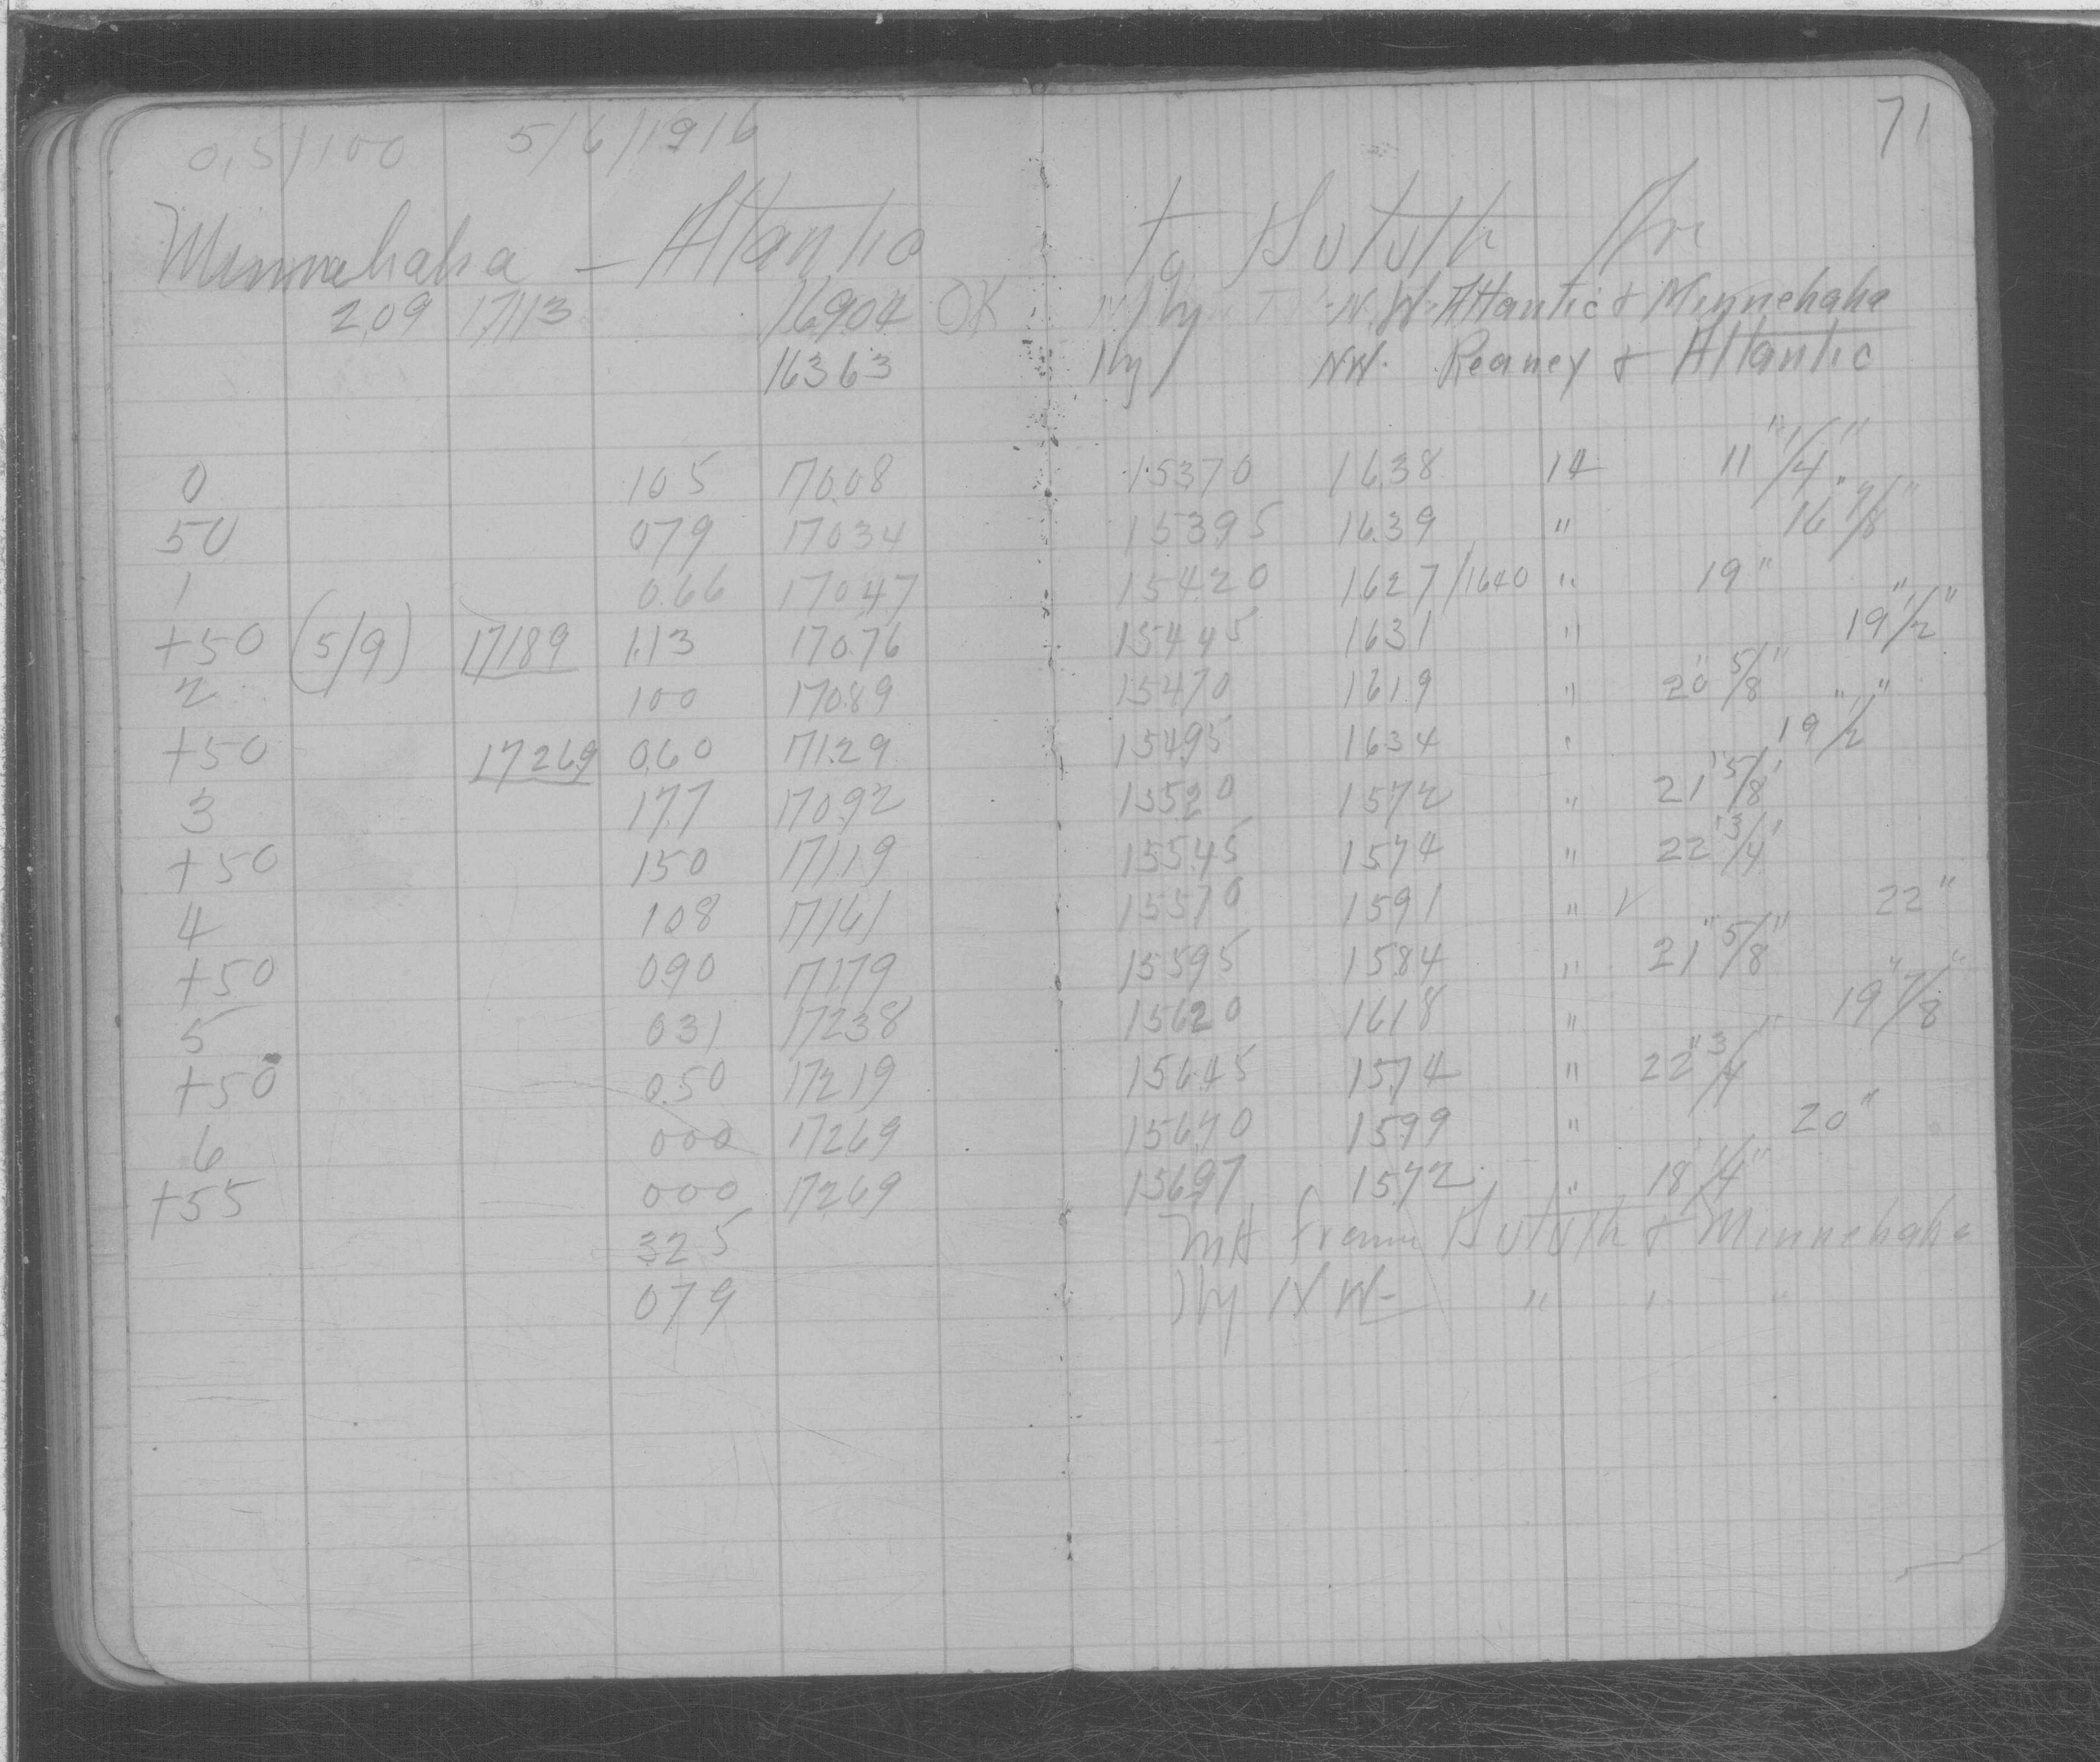 71
0.5/100 5/6/1916
Minnehaha - Atlantic to Duluth Ave
2.09 171.13 169.04 OK Hy N.W. Atlantic & Minnehaha
163.63 Hy NW. Reaney & Atlantic
0 105 170.08 153.70 16.38 14 11" 1/4"
50 079 170.34 153.95 16.39 " 16" 7/8"
1 0.66 170.47 154.20 1627/1640 " 19"
+50 (5/9) 171.89 1.13 170.76 154.45 1631 " 19" 1/2"
2 100 170.89 154.70 1619 " 20" 5/8"
+50 172.69 0.60 171.29 154.95 1634 " 19" 1/2"
3 177 170.92 155.20 1572 " 21" 5/8"
+50 150 171.19 155.45 1574 " 22" 3/4"
4 108 171.61 155.70 1591 " 22"
+50 090 171.79 155.95 1584 " 21" 5/8"
5 031 172.38 156.20 1618 " 19" 7/8"
+50 0.50 172.19 156.45 1574 " 22" 3/4"
6 000 172.69 156.70 1599 " 20"
+55 000 172.69 156.97 1572 " 18" 1/4"
325 Duluth & Minnehaha
079 Hy NW- " " "